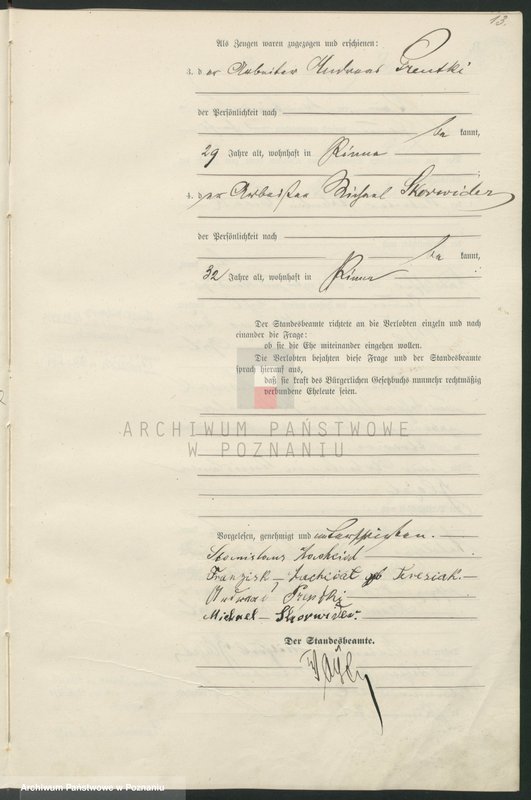 13.
Als Zeugen waren zugezogen und erschienen:
3. der Arbeiter Andreas
der Persönlichkeit nach
be kannt,
29 Jahre alt, wohnhaft in
4. der Arbeiter Michael Skorwider
der Persönlichkeit nach
be kannt,
32 Jahre alt, wohnhaft in
Der Standesbeamte richtete an die Verlobten einzeln und nach
einander die Frage:
ob sie die Ehe miteinander eingehen wollen.
Die Verlobten bejahten diese Frage und der Standesbeamte
sprach hierauf aus,
daß sie kraft des Bürgerlichen Gesetzbuchs nunmehr rechtmäßig
verbundene Eheleute seien.
ARCHIWUM PAŃSTWOWE
W POZNANIU
Vorgelesen, genehmigt und unterschrieben.
Stanislaus
geb Teresiak
Michael Skorwider
Der Standesbeamte.
Archiwum Państwowe w Poznaniu